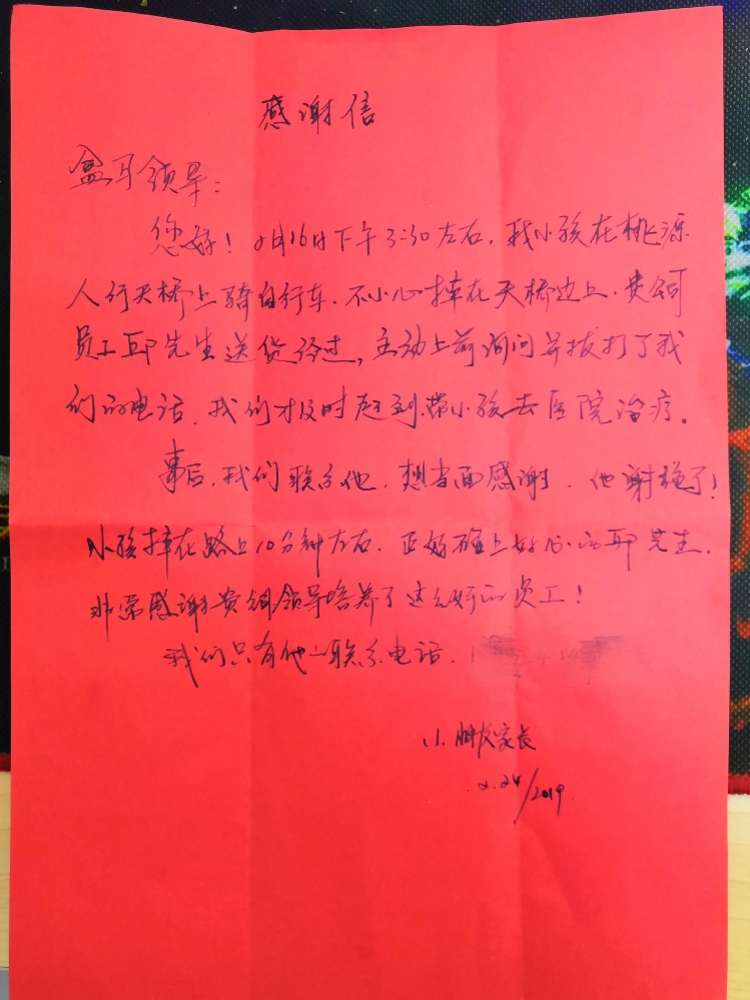 感谢信
盒马领导：
您好！2月16日下午3:30左右，我小孩在桃源
人行天桥上骑自行车，不小心摔在天桥边上，贵公司
员工邱先生送货经过，主动上前询问并拔打了我
们的电话，我们才及时赶到带小孩去医院治疗。
事后，我们联系他，想当面感谢，他谢绝了！
小孩摔在路上10分钟左右，正好碰上好心的邱先生，
非常感谢贵公司领导培养了这么好的员工！
我们只有他一联系电话，
小朋友家长
2.24/2019